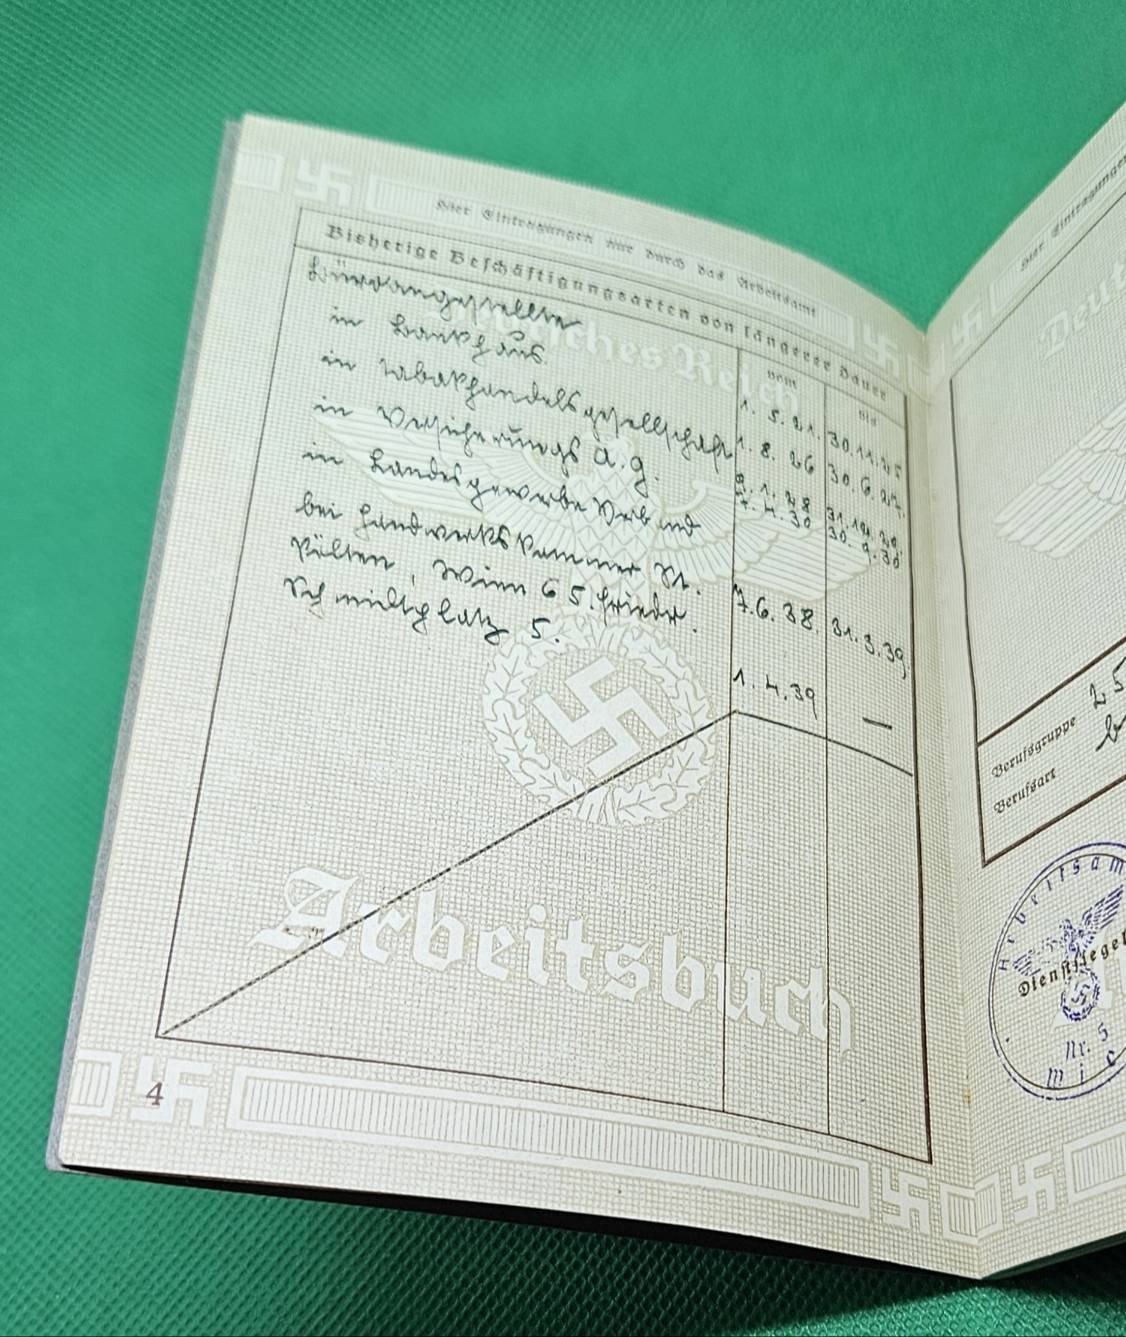 Hier Eintragungen nur durch das Arbeitsamt
Bisherige Beschäftigungsarten von längerer Dauer
vom
bis
Deutsches Reich
Büroangestellte
in Bankhaus.
1. 5. 21. 30.11.25
in Tabakhandelsgesellschaft
1. 8. 26 30. 6. 27.
in Versicherungs A.G.
9. 1. 28 31.12.29.
7. 4. 30 30. 9. 30
in Landesgewerbe Verband
7.6.38. 31.3.39.
bei Handwerkskammer St.
Pölten, Wien 65. Friedr.
Schmidtplatz 5.
1. 4. 39 —
Arbeitsbuch
4
Hier Eintragungen
Berufsgruppe 25
Berufsart
Dienstsiegel
Nr. 5